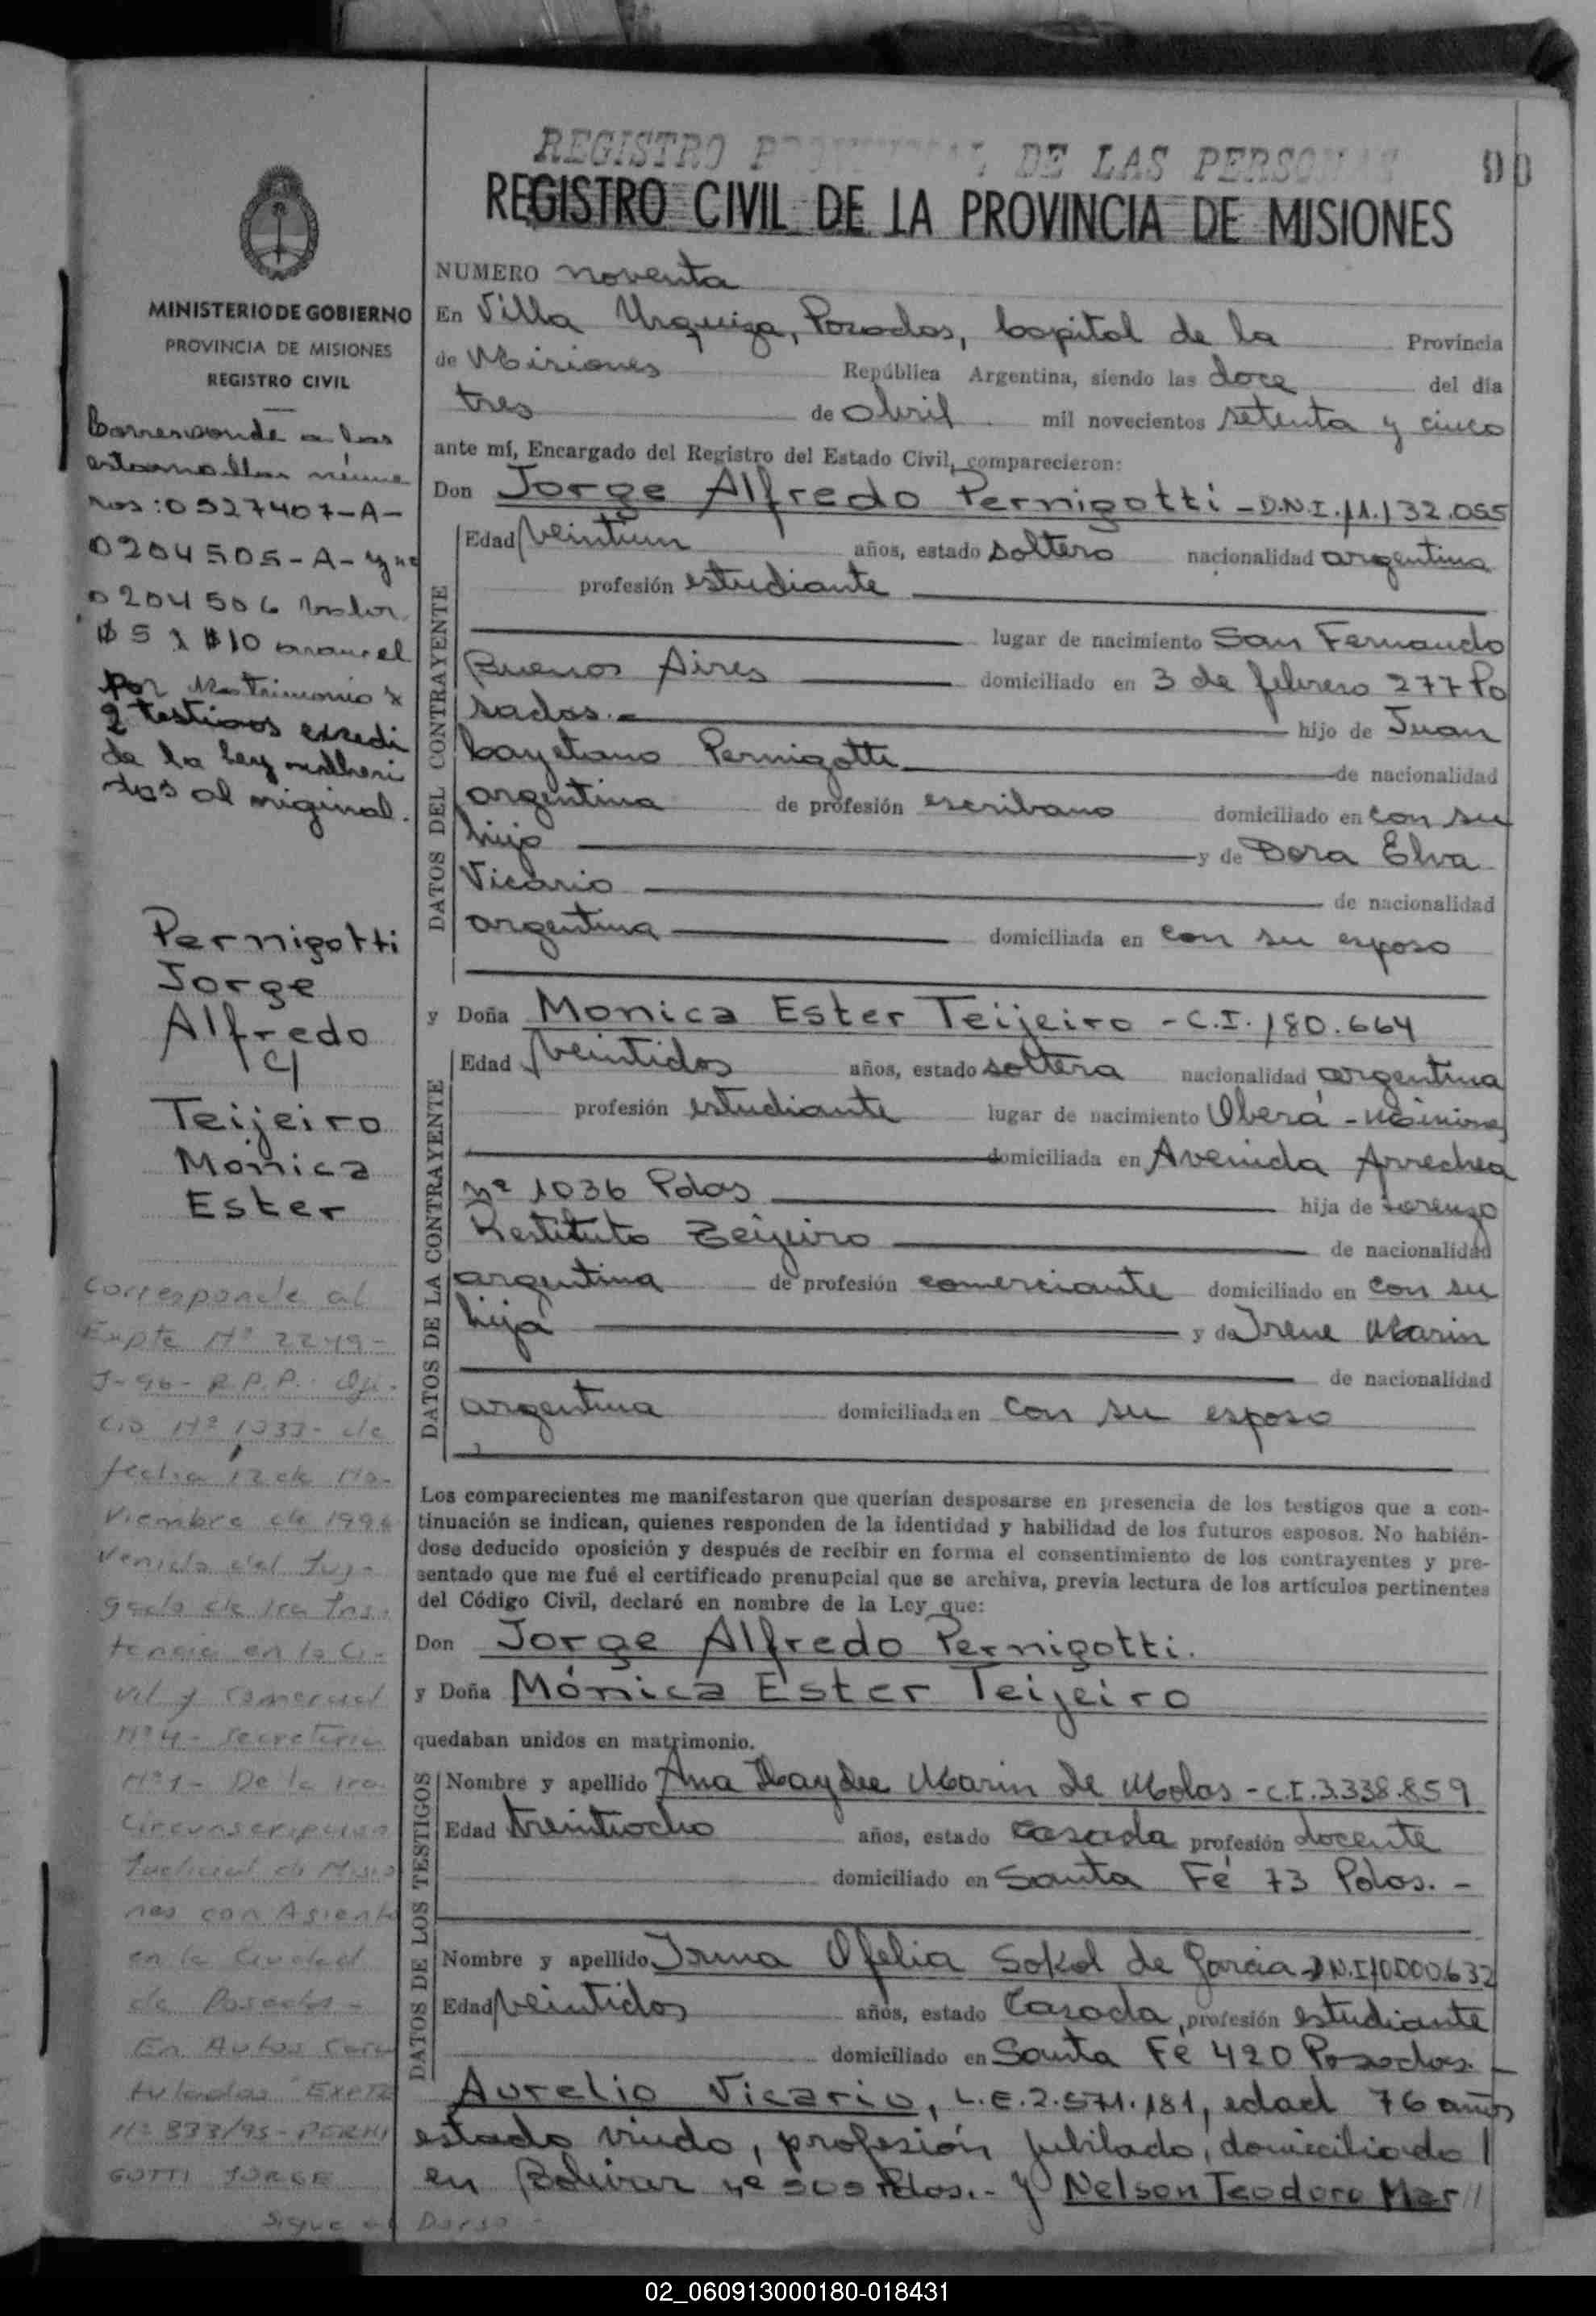 REGISTRO PROVINCIAL DE LAS PERSONAS
90
REGISTRO CIVIL DE LA PROVINCIA DE MISIONES
MINISTERIO DE GOBIERNO
PROVINCIA DE MISIONES
REGISTRO CIVIL
Corresponde a las
estampillas núme
ros: 0527407-A-
0204505-A- y nº
0204506 valor
$ 5 y $ 10 arancel
por Matrimonio y
2 testigos exedi
de la ley adheri
das al original.
Pernigotti
Jorge
Alfredo
c/
Teijeiro
Monica
Ester
Corresponde al
Expte Nº 2249-
J-96- R.P.P. Ofi-
cio Nº 1033- de
fecha 12 de No-
viembre de 1996
venido del Juz-
gado de 1ra Ins-
tancia en lo Ci-
vil y Comercial
Nº 4- Secretaria
Nº 1- De la 1ra
Circunscripcion
Judicial de Misio
nes con Asiento
en la Ciudad
de Posadas-
En Autos Cara
tulados Expte
Nº 833/95- PERNI
GOTTI JORGE
Sigue al Dorso-
NUMERO noventa
En Villa Urquiza, Posadas, Capital de la Provincia
de Misiones República Argentina, siendo las doce del día
tres de abril mil novecientos setenta y cinco
ante mí, Encargado del Registro del Estado Civil, comparecieron:
Don Jorge Alfredo Pernigotti - D.N.I. 11.132.055
DATOS DEL CONTRAYENTE
Edad veintiun años, estado soltero nacionalidad argentina
profesión estudiante
lugar de nacimiento San Fernando
Buenos Aires domiciliado en 3 de febrero 277 Po
sadas.- hijo de Juan
Cayetano Pernigotti de nacionalidad
argentina de profesión escribano domiciliado en con su
hijo y de Dora Elva
Vicario de nacionalidad
argentina domiciliada en con su esposo
y Doña Monica Ester Teijeiro - C.I. 180.664
DATOS DE LA CONTRAYENTE
Edad veintidos años, estado soltera nacionalidad argentina
profesión estudiante lugar de nacimiento Oberá - Misiones
domiciliada en Avenida Arrechea
nº 1036 Pdas hija de Lorenzo
Restituto Teijeiro de nacionalidad
argentina de profesión comerciante domiciliado en con su
hija y de Irene Marin
de nacionalidad
argentina domiciliada en con su esposo
Los comparecientes me manifestaron que querían desposarse en presencia de los testigos que a con-
tinuación se indican, quienes responden de la identidad y habilidad de los futuros esposos. No habién-
dose deducido oposición y después de recibir en forma el consentimiento de los contrayentes y pre-
sentado que me fué el certificado prenupcial que se archiva, previa lectura de los artículos pertinentes
del Código Civil, declaré en nombre de la Ley que:
Don Jorge Alfredo Pernigotti.
y Doña Mónica Ester Teijeiro
quedaban unidos en matrimonio.
DATOS DE LOS TESTIGOS
Nombre y apellido Ana Haydee Marin de Molas - C.I. 3.338.859
Edad treintiocho años, estado casada profesión docente
domiciliado en Santa Fé 73 Pdas. -
Nombre y apellido Irma Ofelia Sokol de Garcia D.N.I 10.000.632
Edad veintidos años, estado Casada, profesión estudiante
domiciliado en Santa Fe 420 Posadas. -
Aurelio Vicario, L.E. 2.571.181, edad 76 años
estado viudo, profesión jubilado, domiciliado
en Bolivar nº Pdas.- y Nelson Teodoro Mar//
02_060913000180-018431